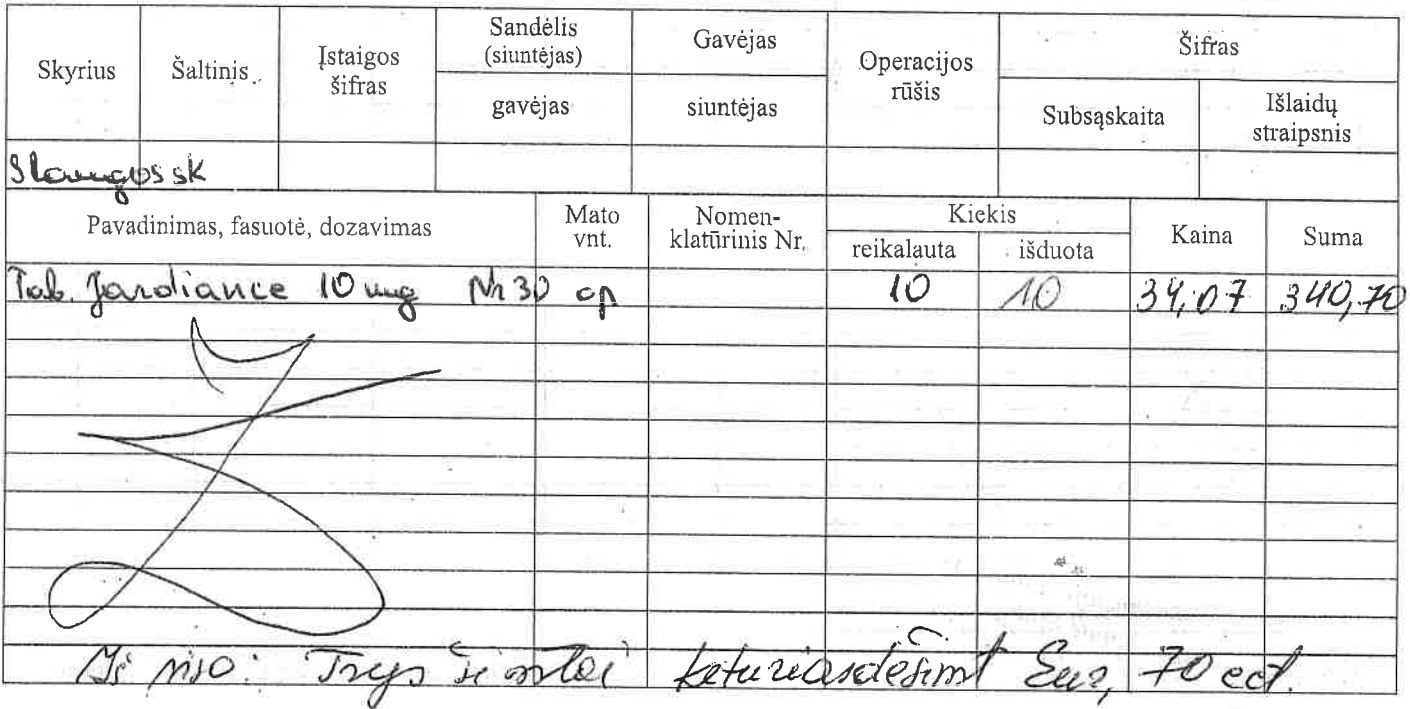 Skyrius Šaltinis Įstaigos šifras Sandėlis (siuntėjas) Gavėjas Operacijos rūšis Šifras
gavėjas siuntėjas Subsąskaita Išlaidų straipsnis
Slaugos sk
Pavadinimas, fasuotė, dozavimas Mato vnt. Nomen-klatūrinis Nr. Kiekis Kaina Suma
reikalauta išduota
Tab. Jardiance 10 mg Nr 30 op 10 10 34,07 340,70
Iš viso: Trys šimtai keturiasdešimt Eur, 70 ect.